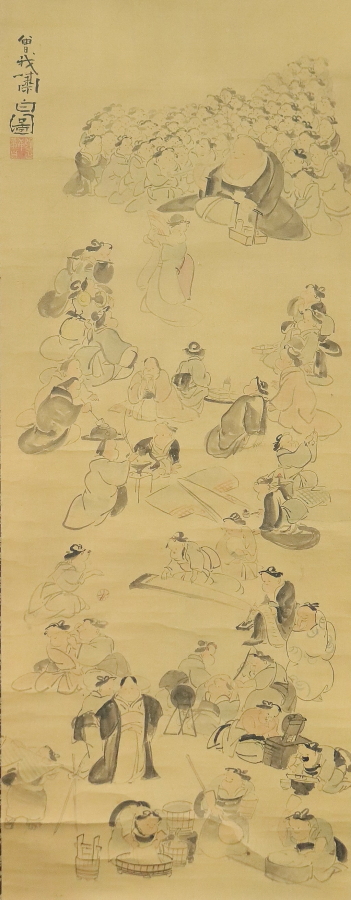 曾我蕭白圖